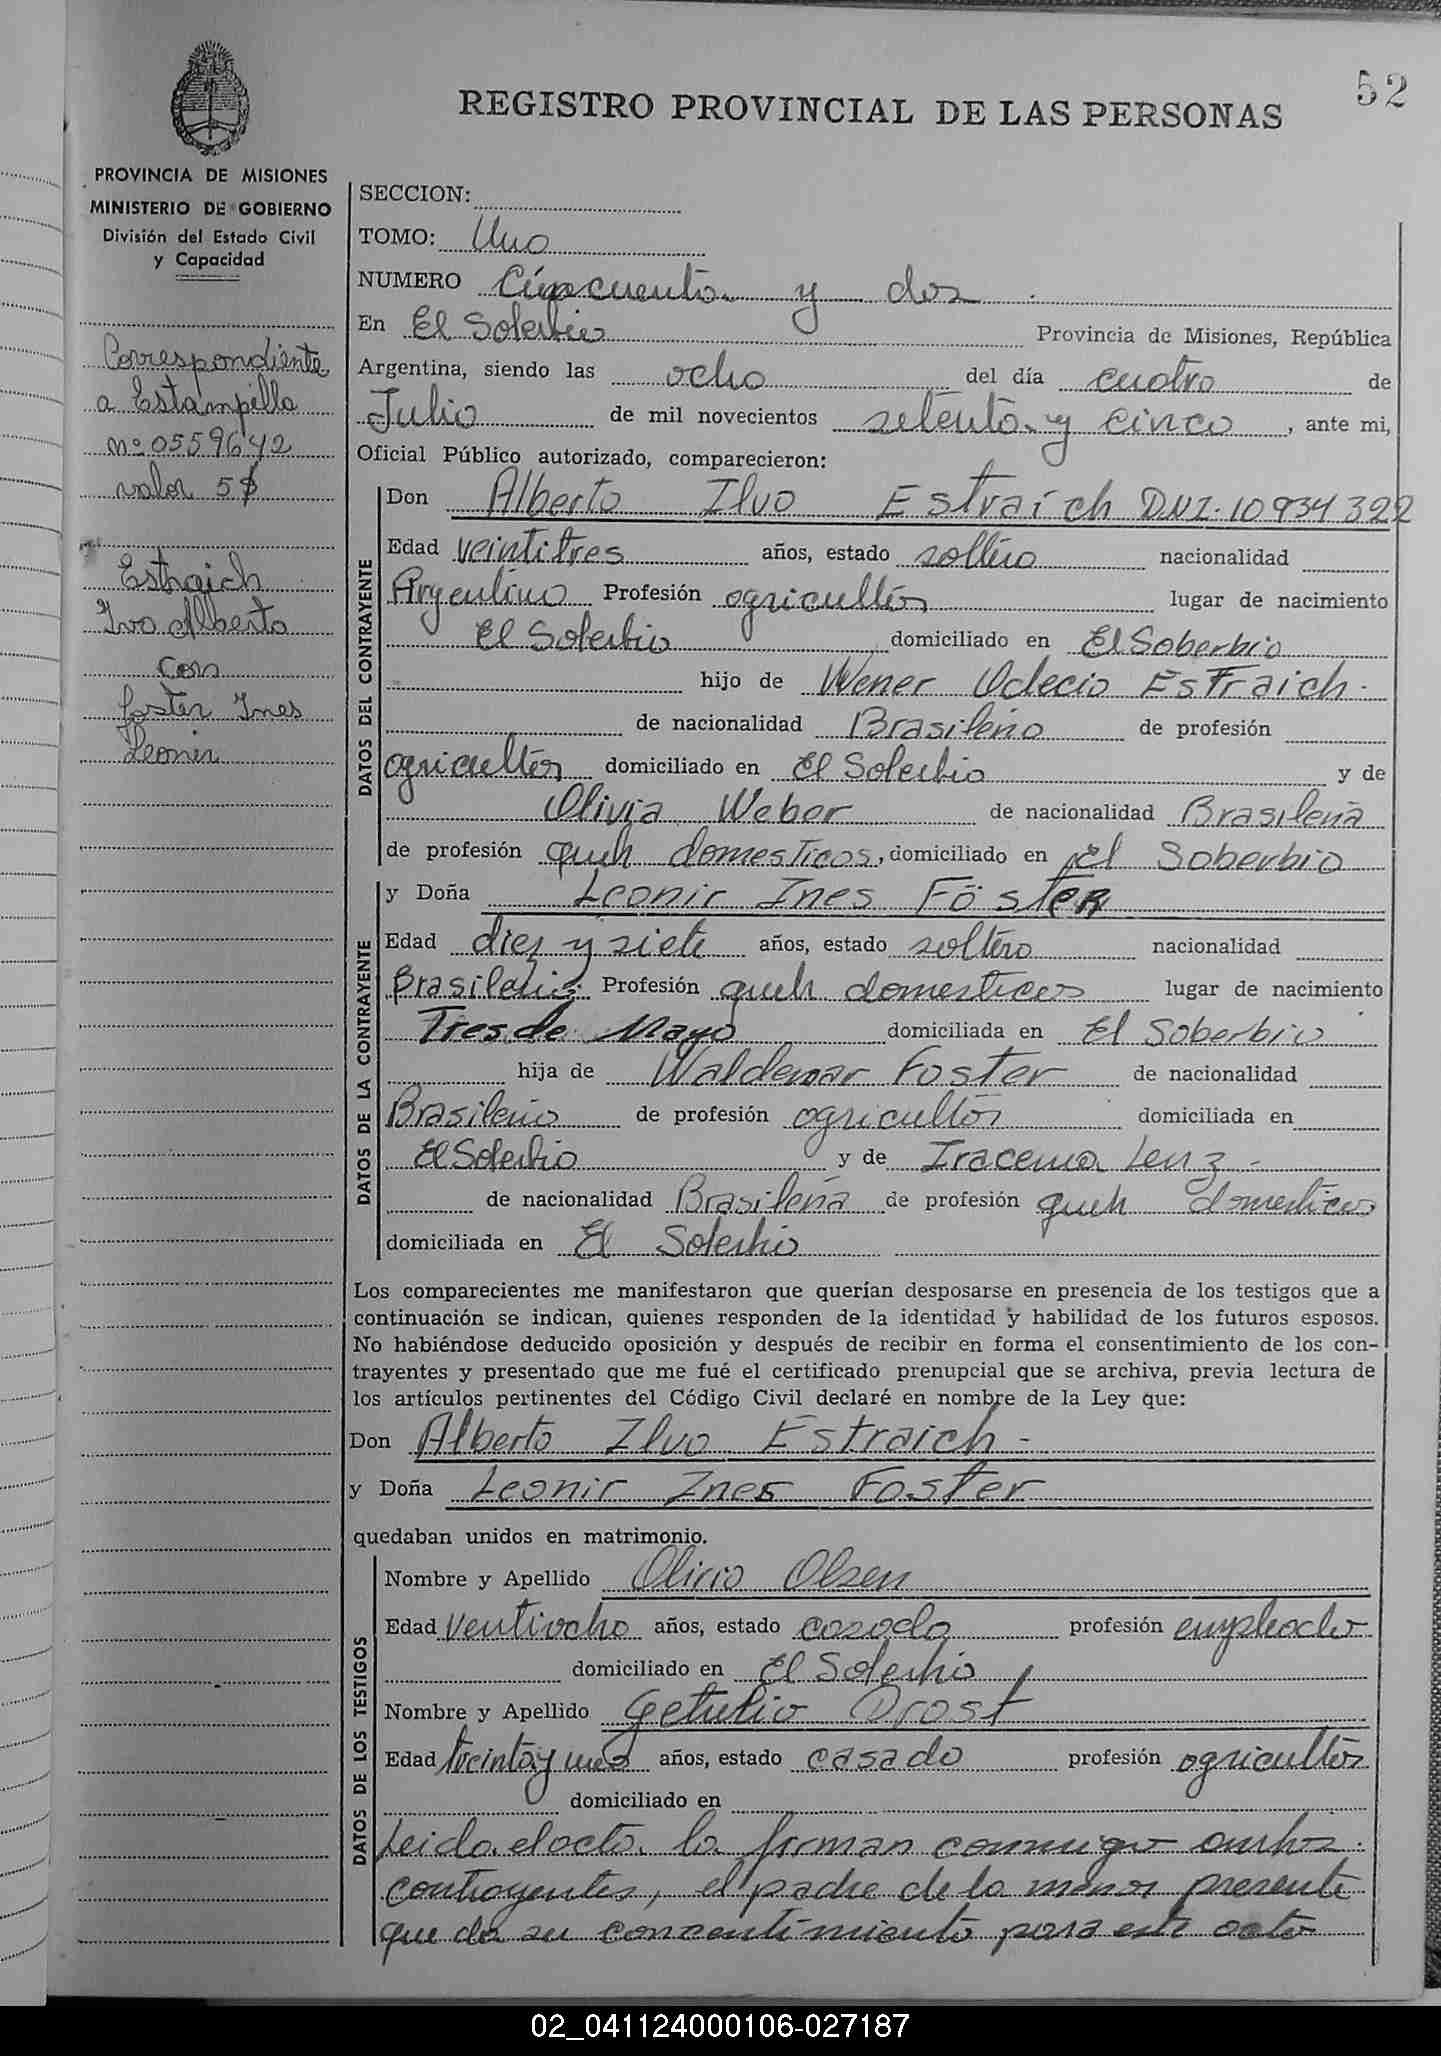 52
REGISTRO PROVINCIAL DE LAS PERSONAS
PROVINCIA DE MISIONES
MINISTERIO DE GOBIERNO
División del Estado Civil
y Capacidad
Correspondiente
a Estampilla
nº 0559642
valor 5$
Estraich
Ivo Alberto
con
Foster Ines
Leonir
SECCION:
TOMO: Uno
NUMERO Cincuenta y dos
En El Soberbio Provincia de Misiones, República
Argentina, siendo las ocho del día cuatro de
Julio de mil novecientos setenta y cinco, ante mi,
Oficial Público autorizado, comparecieron:
DATOS DEL CONTRAYENTE
Don Alberto Ilvo Estraich DNI. 10934322
Edad veintitres años, estado soltero nacionalidad
Argentino Profesión agricultor lugar de nacimiento
El Soberbio domiciliado en El Soberbio
hijo de Wener Odecio Estraich.
de nacionalidad Brasileño de profesión
agricultor domiciliado en El Soberbio y de
Olivia Weber de nacionalidad Brasileña
de profesión queh domesticos, domiciliado en El Soberbio
DATOS DE LA CONTRAYENTE
y Doña Leonir Ines Föster
Edad diez y siete años, estado soltero nacionalidad
Profesión queh domesticos lugar de nacimiento
Tres de Mayo domiciliada en El Soberbio
hija de Waldemar Foster de nacionalidad
Brasileño de profesión agricultor domiciliada en
El Soberbio y de Iracema Lenz -
de nacionalidad Brasileña de profesión queh domesticos
domiciliada en El Soberbio
Los comparecientes me manifestaron que querían desposarse en presencia de los testigos que a
continuación se indican, quienes responden de la identidad y habilidad de los futuros esposos.
No habiéndose deducido oposición y después de recibir en forma el consentimiento de los con-
trayentes y presentado que me fué el certificado prenupcial que se archiva, previa lectura de
los artículos pertinentes del Código Civil declaré en nombre de la Ley que:
Don Alberto Ilvo Estraich -
y Doña Leonir Ines Foster
quedaban unidos en matrimonio.
DATOS DE LOS TESTIGOS
Nombre y Apellido Olirio Olsen
Edad ventiocho años, estado casado profesión empleado
domiciliado en El Soberbio
Nombre y Apellido Getulio Drost
Edad treinta y uno años, estado casado profesión agricultor
domiciliado en
Leida el acta la firman conmigo ambos
contrayentes, el padre de la menor presente
que da su concentimiento para este acto
02_041124000106-027187